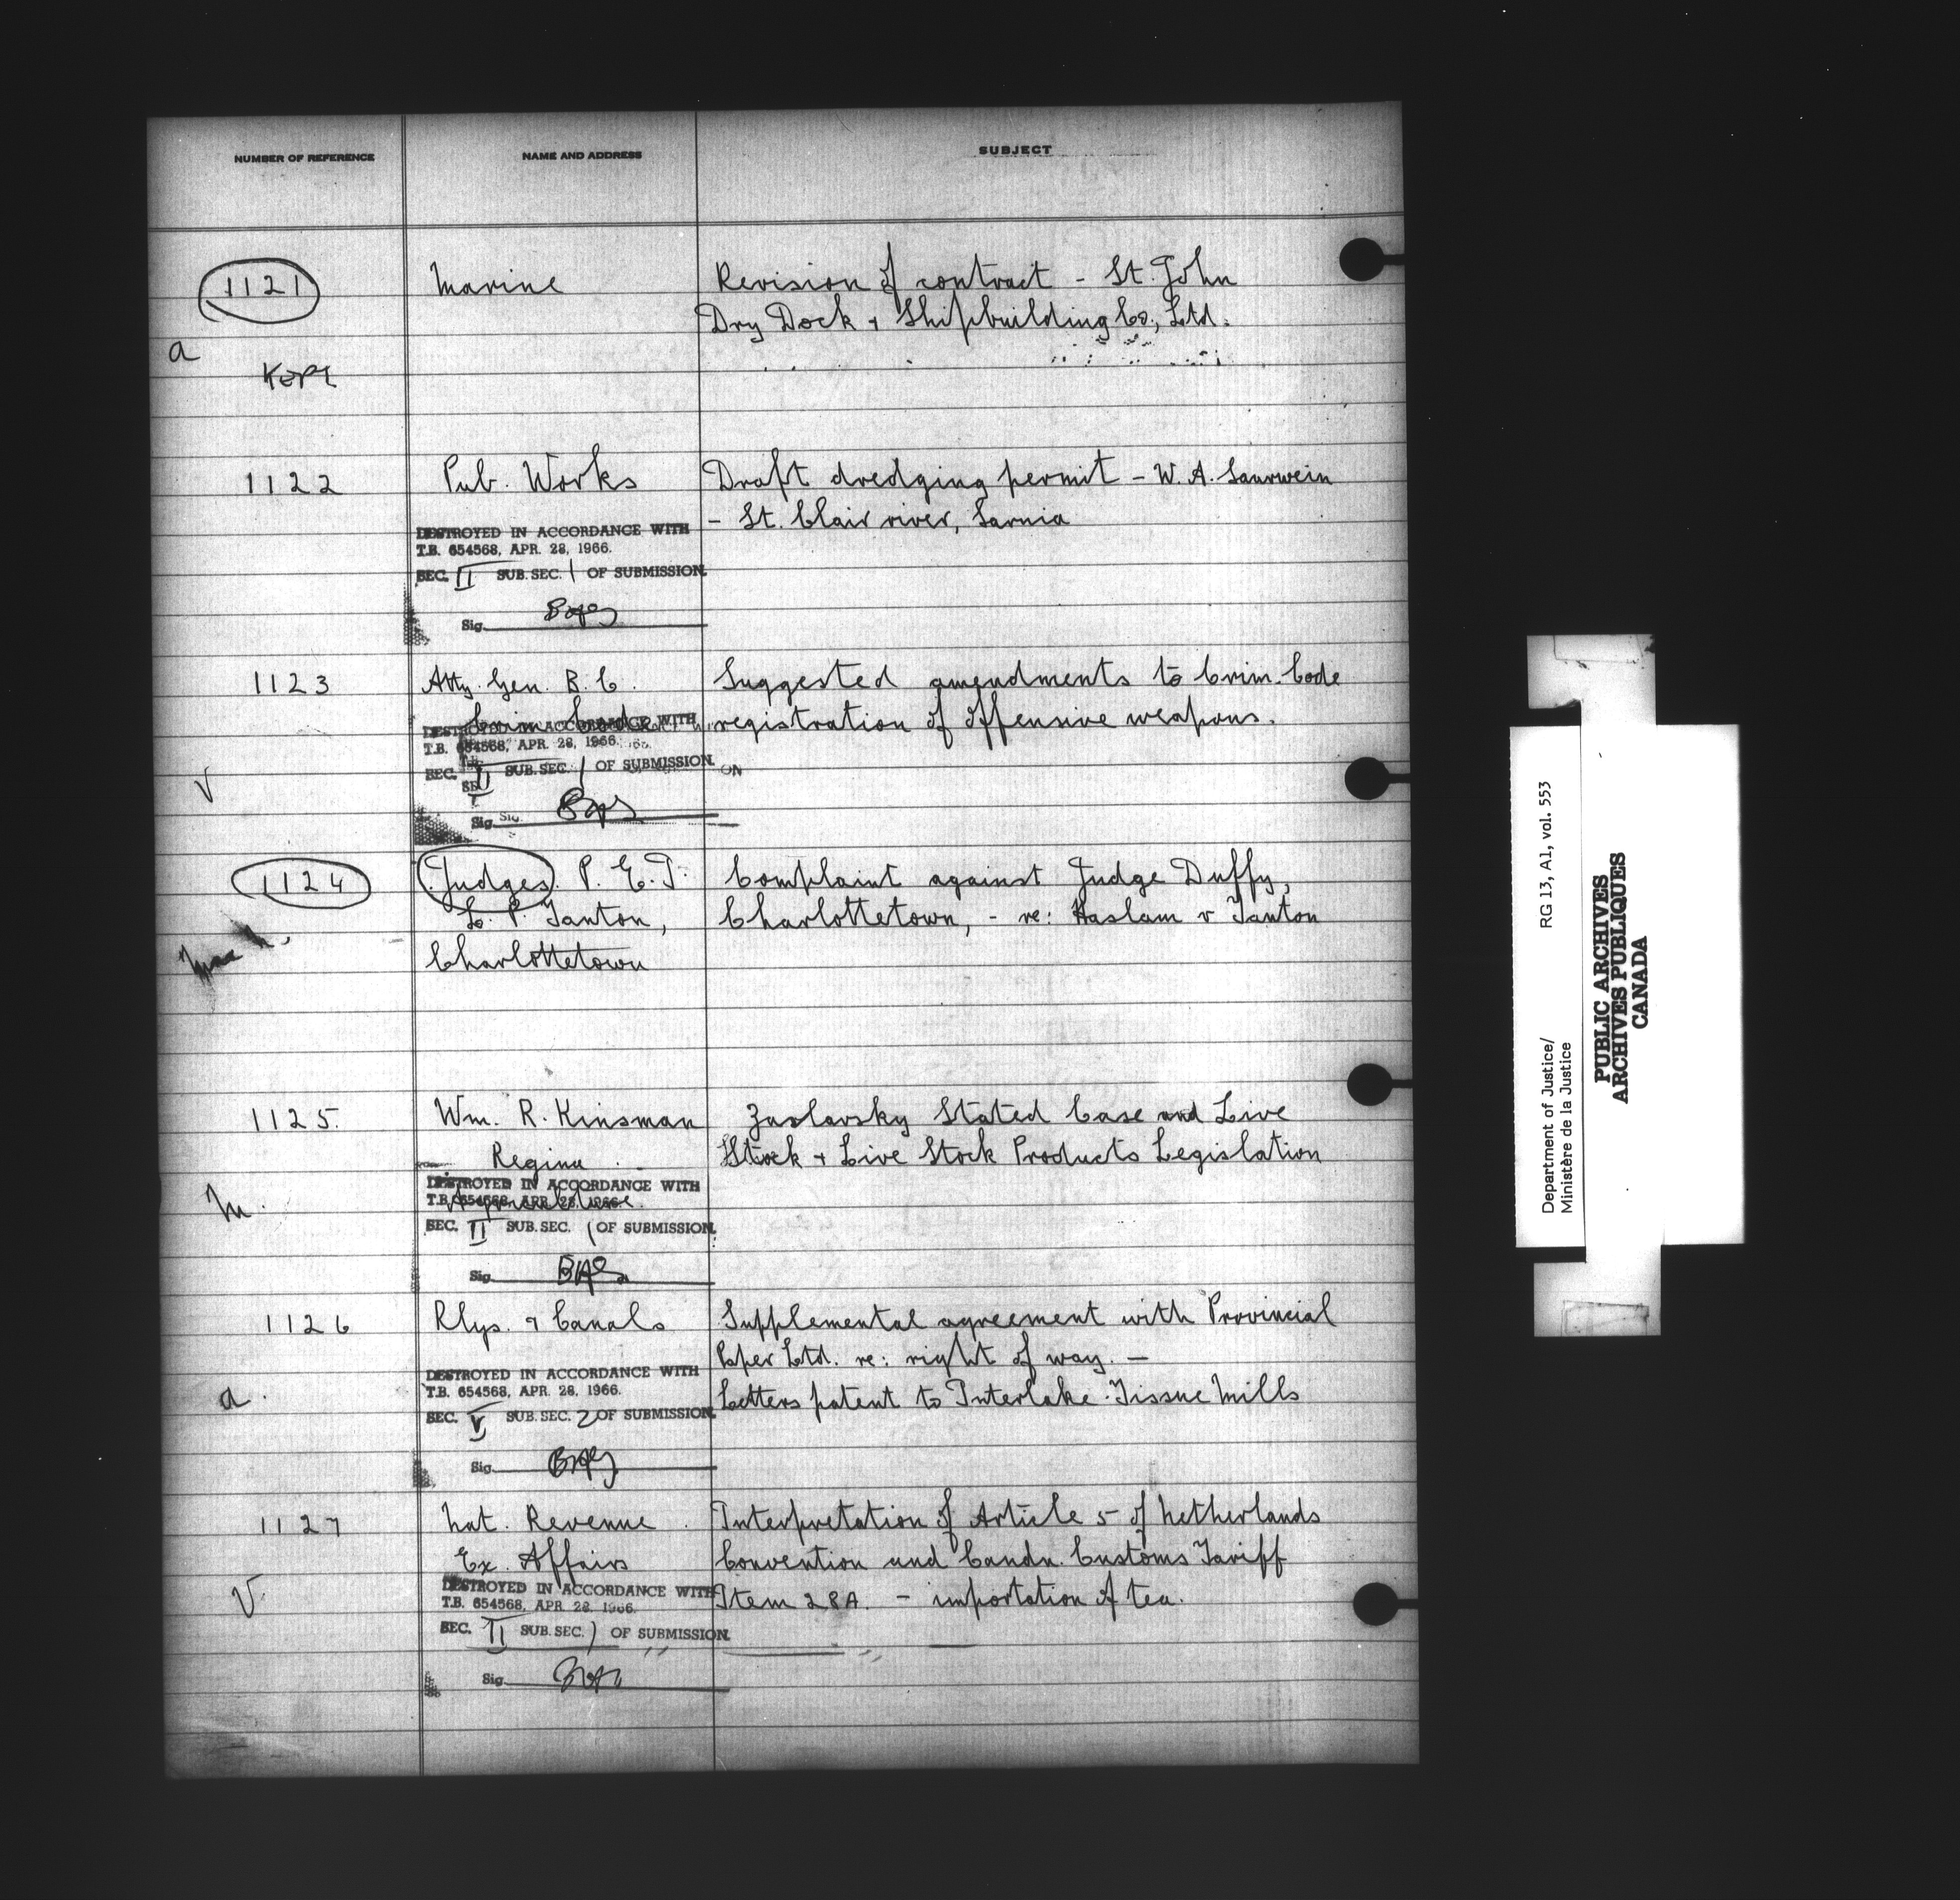 NUMBER OF REFERENCE NAME AND ADDRESS SUBJECT
1121 Marine Revision of contract - St. John
Dry Dock + Shipbuilding Co., Ltd.
a
KEPT
1122 Pub. Works Draft dredging permit - W. A. Saurwein
- St. Clair river, Sarnia
DESTROYED IN ACCORDANCE WITH
T.B. 654568, APR. 28, 1966.
SEC. II SUB. SEC. 1 OF SUBMISSION.
Sig.
1123 Atty. Gen. B. C. Suggested amendments to Crim. Code
Crim. Code registration of offensive weapons.
DESTROYED IN ACCORDANCE WITH
T.B. 654568, APR. 28, 1966.
SEC. II SUB. SEC. 1 OF SUBMISSION.
V
Sig.
1124 Judges. P. E. I. Complaint against Judge Duffy,
L. P. Tanton, Charlottetown, - re: Haslam v Tanton
Charlottetown
1125. Wm. R. Kinsman Zaslavsky Stated Case and Live
Regina Stock + Live Stock Products Legislation
DESTROYED IN ACCORDANCE WITH
T.B. 654568, APR. 28, 1966.
Agriculture
M.
SEC. II SUB. SEC. 1 OF SUBMISSION.
Sig.
1126 Rlys. & Canals Supplemental agreement with Provincial
Paper Ltd. re: right of way. -
DESTROYED IN ACCORDANCE WITH
T.B. 654568, APR. 28, 1966.
a. Letters patent to Interlake Tissue Mills
SEC. V SUB. SEC. 2 OF SUBMISSION.
Sig.
1127 Nat. Revenue Interpretation of Article 5 of Netherlands
Ex. Affairs Convention and Candn. Customs Tariff
V DESTROYED IN ACCORDANCE WITH Item 28A. - importation of tea.
T.B. 654568, APR. 28, 1966.
SEC. II SUB. SEC. 1 OF SUBMISSION.
Sig.
Department of Justice/ RG 13, A1, vol. 553
Ministère de la Justice
PUBLIC ARCHIVES
ARCHIVES PUBLIQUES
CANADA